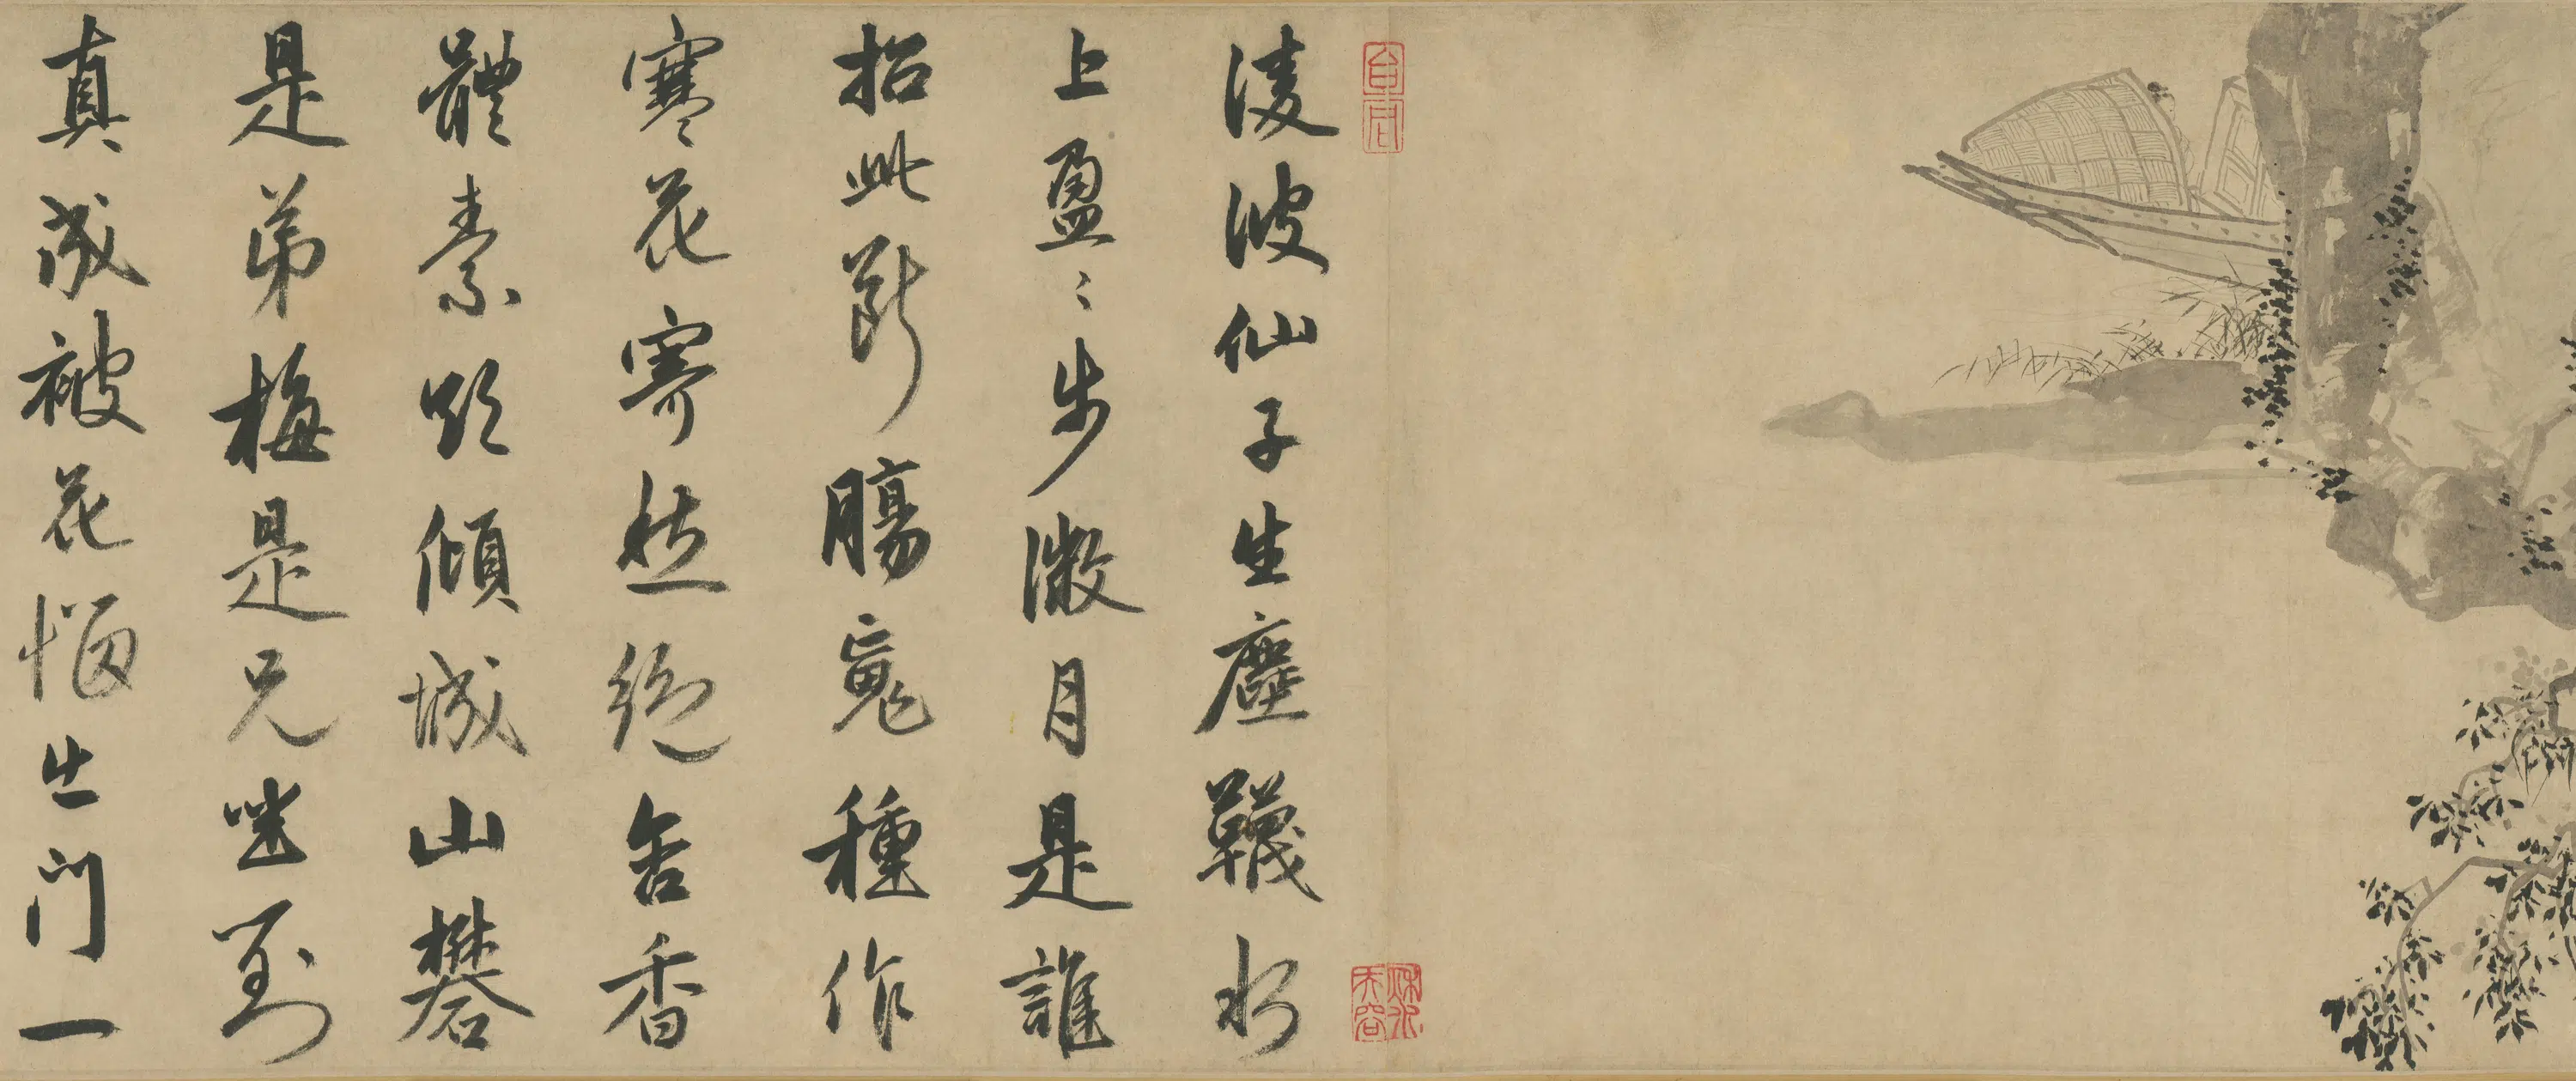 淩波仙子生塵韈水
上盈〻步微月是誰
招此斷腸魂種作
寒花寄愁絕含香
體素欲傾城山礬
是弟梅是兄坐對
真成被花惱出門一